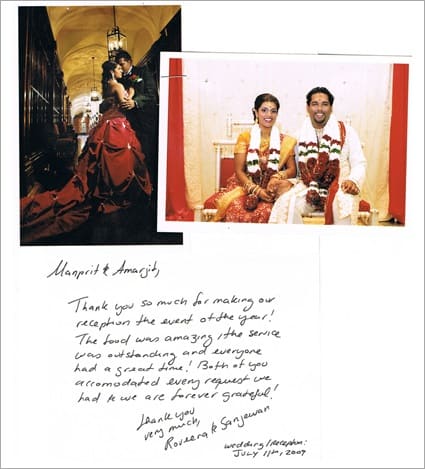 Manprit & Amarjit,
Thank you so much for making our
reception the event of the year!
The food was amazing, the service
was outstanding and everyone
had a great time! Both of you
accomodated every request we
had & we are forever grateful!
thank you
very much,
Roveena & Sanjewan
wedding/reception:
JULY 11th, 2009